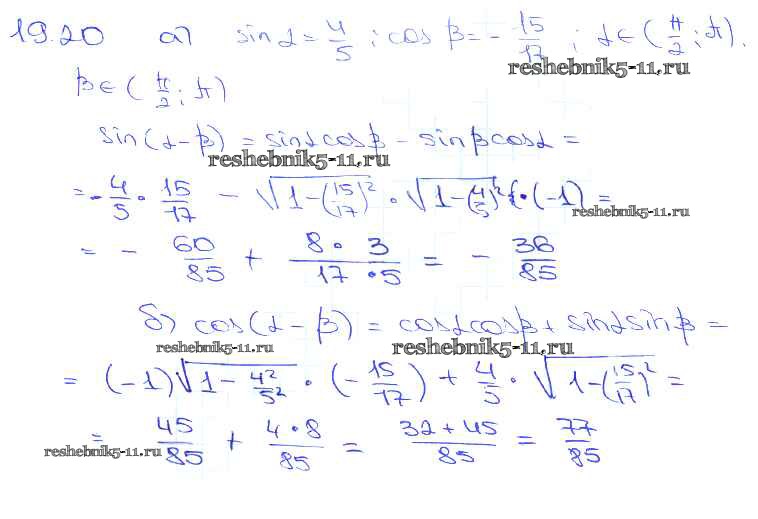 19.20 а) sin α = 4/5 ; cos β = - 15/17 ; α ∈ (π/2 ; π).
reshebnik5-11.ru
β ∈ (π/2 ; π)
sin(α - β) = sinα cosβ - sinβ cosα =
reshebnik5-11.ru
= - 4/5 · 15/17 - √(1-(15/17)²) · √(1-(4/5)²) · (-1) =
reshebnik5-11.ru
= - 60/85 + (8 · 3)/(17 · 5) = - 36/85
б) cos(α - β) = cosα cosβ + sinα sinβ =
reshebnik5-11.ru reshebnik5-11.ru
= (-1)√(1 - 4²/5²) · (- 15/17) + 4/5 · √(1-(15/17)²) =
= 45/85 + (4 · 8)/85 = (32 + 45)/85 = 77/85
reshebnik5-11.ru